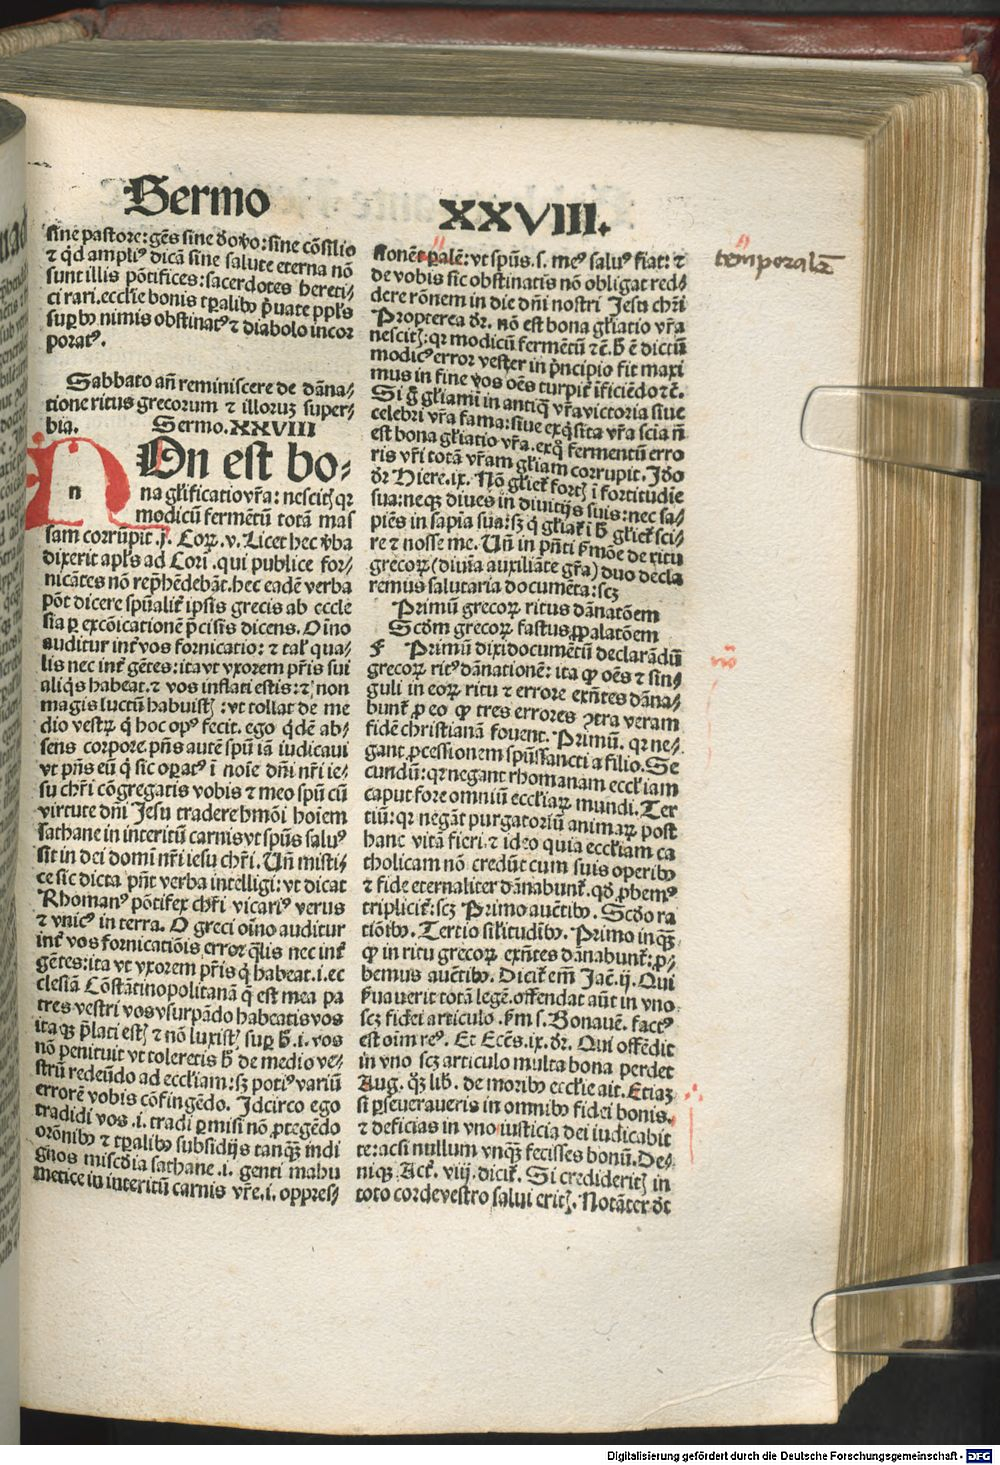 Sermo
XXVIII.
sine pastore: gēs sine dōvo: sine cōsilio
⁊ qd ampliꝰ dicā sine salute eterna nō
sunt illis pōtifices: sacerdotes hereti⸗
ci rari. ecclie bonis tꝑalibꝫ p̄uate pplꝰs
suꝑbꝫ nimis obstinatꝰ ⁊ diabolo incor
poratꝰ.
Sabbato an̄ reminiscere de dāna⸗
tione ritus grecorum ⁊ illoruꝫ super⸗
bia. Sermo. XXVIII
n
NOn est bo⸗
na gl̄ificatio vr̄a: nescitꝭ qꝛ
modicū fermētū totā mas
sam corrūpit .j. Coꝝ. v. Licet hec v̄ba
dixerit apl̄s ad Cori. qui publice for⸗
nicātes nō rep̄hēdebāt. hec eadē verba
pōt dicere spūalit̄ ipsis grecis ab eccle
sia ꝑ excōicationē p̄cisis dicens. Oīno
auditur int̄ vos fornicatio: ⁊ tal̄ qua⸗
lis nec int̄ gētes: ita vt vxorem pr̄is sui
aliq̄s habeat. ⁊ vos inflati estis: ⁊ non
magis luctū habuistꝭ: vt tollat̄ de me
dio vestꝝ q̄ hoc opꝰ fecit. ego q̄dē ab⸗
sens corpore. pn̄s autē spū iā iudicaui
vt pn̄s eū q̄ sic oꝑatꝰ ī noīe dn̄i nr̄i ie⸗
su chr̄i cōgregatis vobis ⁊ meo spū cū
virtute dn̄i Jesu tradere hmōi hoīem
sathane in interitū carnis vt spūs saluꝰ
sit in dei domī nr̄i iesu chr̄i. Un̄ misti⸗
ce sic dicta pn̄t verba intelligi: vt dicat
Rhomanꝰ pōtifex chr̄i vicariꝰ verus
⁊ vnicꝰ in terra. O greci oīno auditur
int̄ vos fornicatiōis error q̄lis nec int̄
gētes: ita vt vxorem pr̄is q̄ habeat. i. ec
clesiā Cōstātinopolitanā q̄ est mea pa
tres vestri vos vsurpādo habeatis vos
itaqꝫ p̄lati estꝭ ⁊ nō luxistꝭ suꝑ h̄. i. vos
nō penituit vt toleretis h̄ de medio ve⸗
strū redeūdo ad eccl̄iam: sꝫ potiꝰ variū
errorē vobis cōfingēdo. Idcirco ego
tradidi vos .i. tradi ꝑmisi nō ꝓtegēdo
orōnibꝫ ⁊ tꝑalibꝫ subsidijs tanqꝫ̄ indi
gnos misc̄dia sathane .i. genti mahu
metice in interitū carnis vr̄e. i. oppres⸗
sionēt ꝑalē: vt spūs. s. meꝰ saluꝰ fiat: ⁊
de vobis sic obstinatis nō obligat red⸗
dere rōnem in die dn̄i nostri Jesu chr̄i
Propterea dr̄. nō est bona gl̄iatio vr̄a
nescitꝭ: qꝛ modicū fermētū ⁊c̄. h̄ ē dictū
modicꝰ error vester in p̄ncipio fit maxi
mus in fine vos oēs turpit̄ īficiēdo ⁊c̄.
Si g̊ gl̄iamī in antiq̄ vr̄a victoria siue
celebri vr̄a fama: siue exq̄sita vr̄a scia n̄
est bona gl̄iatio vr̄a. ex q̄ fermentū erro
ris vr̄i totā vr̄am gl̄iam corrupit. Jdo
dr̄ Hiere. ix. Nō gl̄iet̄ fortꝭ ī fortitudīe
sua: neqꝫ diues in diuitijs suis: nec sa⸗
piēs in sapīa sua: sꝫ q̄ gl̄iat̄ ī h̄ gl̄iet̄ sci⸗
re ⁊ nosse me. Un̄ in pn̄ti ẜmōe de ritu
grecoꝝ (diuīa auxiliāte gr̄a) duo decla
remus salutaria documēta: scꝫ
Primū grecoꝝ ritus dānatōem
Scd̄m grecoꝝ fastus ꝓpalatōem
Primū dixi documētū declarādū
grecoꝝ ritꝰ dānationē: ita ꝙ oēs ⁊ sin⸗
guli in eoꝝ ritu ⁊ errore exn̄tes dāna⸗
bunt̄ ꝑ eo ꝙ tres errores ꝯtra veram
fidē christianā fouent. Primū. qꝛ ne⸗
gant ꝓcessionem spūssancti a filio. Se
cundū: qꝛ negant rhomanam eccl̄iam
caput fore omniū eccl̄iaꝝ mundi. Ter
tiū: qꝛ negāt purgatoriū animaꝝ post
hanc vitā fieri. ⁊ ideo quia eccl̄iam ca
tholicam nō credūt cum suis operibꝫ
⁊ fide eternaliter dānabunt̄. qd̄ ꝓbemꝰ
triplicit̄: scꝫ Primo auc̄tibꝫ. Scd̄o ra
tiōibꝫ. Tertio sil̄itudībꝫ. Primo inqꝫ̄
ꝙ in ritu grecoꝝ exn̄tes dānabunt̄: ꝓ⸗
bemus auc̄tibꝫ. Dicit̄ em̄ Jac̄. ij. Qui
ẜuauerit totā legē. offendat aūt in vno
scꝫ fidei articulo. ẜm s. Bonauē. factꝰ
est oīm reꝰ. Et Ecc̄s. ix. dr̄. Qui offēdit
in vno scꝫ articulo multa bona perdet
Aug. qꝫ̄ lib. de moribꝫ ecclie ait. Etiaꝫ
si ꝑseueraueris in omnibꝫ fidei bonis.
⁊ deficias in vno iusticia dei iudicabit
te: acsi nullum vnqꝫ̄ fecisses bonū. De⸗
niqꝫ Act̄. viij. dicit̄. Si credideritꝭ in
toto corde vestro salui eritꝭ. Notāter dt̄
temporalē
Digitalisierung gefördert durch die Deutsche Forschungsgemeinschaft - DFG